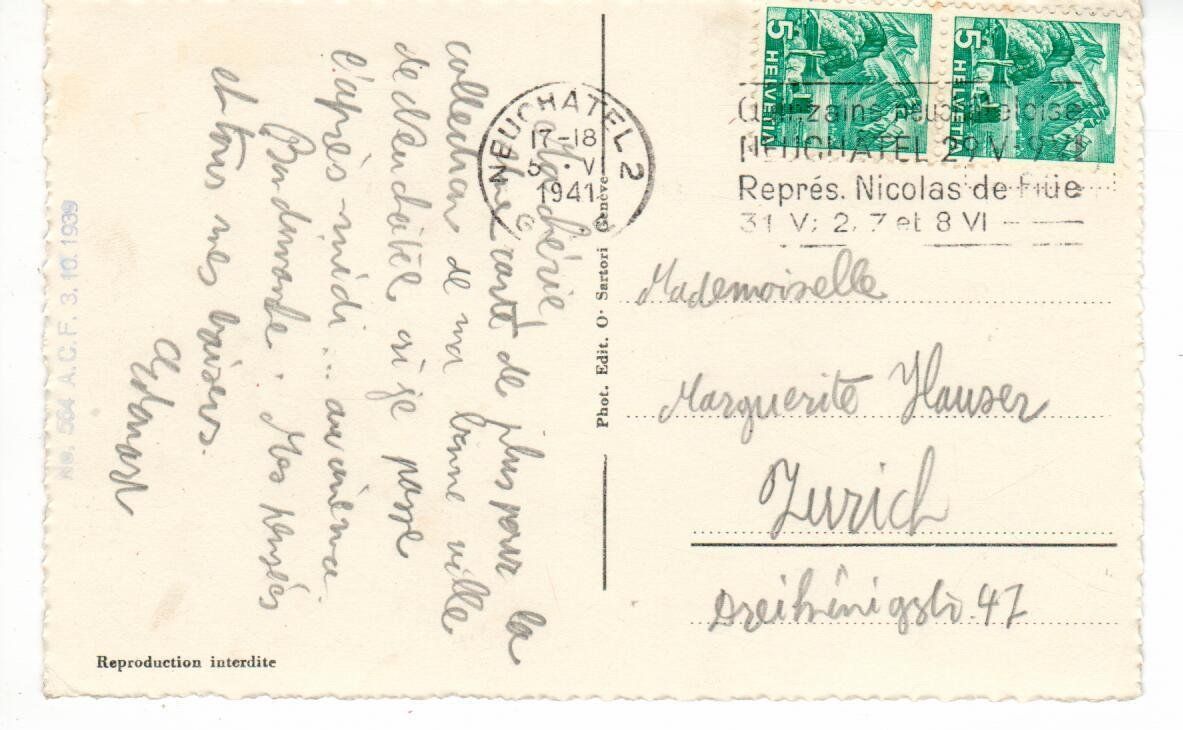 Ma chérie
Une carte de plus pour la
collection de ma bonne ville
de Neuchâtel où je passe
l'après-midi... au cinéma.
Mes pensées
et tous mes baisers.
Edouard
Phot. Edit. O. Sartori Genève
No. 564 A. C. F. 3. 10. 1939
Reproduction interdite
5 HELVETIA
5 HELVETIA
NEUCHATEL 2
17-18
5. VI
1941
Quinzaine neuchâteloise
NEUCHATEL 29 V-9 VI
Représ. Nicolas de Flüe
31 V; 2, 7 et 8 VI
Mademoiselle
Marguerite Hauser
Zurich
Dreikönigstr. 47